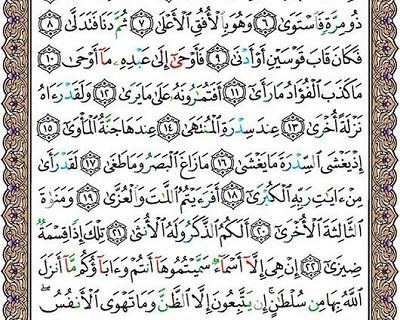 ذُو مِرَّةٍ فَٱسۡتَوَىٰ ٦ وَهُوَ بِٱلۡأُفُقِ ٱلۡأَعۡلَىٰ ٧ ثُمَّ دَنَا فَتَدَلَّىٰ ٨
فَكَانَ قَابَ قَوۡسَيۡنِ أَوۡ أَدۡنَىٰ ٩ فَأَوۡحَىٰٓ إِلَىٰ عَبۡدِهِۦ مَآ أَوۡحَىٰ ١٠
مَا كَذَبَ ٱلۡفُؤَادُ مَا رَأَىٰٓ ١١ أَفَتُمَٰرُونَهُۥ عَلَىٰ مَا يَرَىٰ ١٢ وَلَقَدۡ رَءَاهُ
نَزۡلَةً أُخۡرَىٰ ١٣ عِندَ سِدۡرَةِ ٱلۡمُنتَهَىٰ ١٤ عِندَهَا جَنَّةُ ٱلۡمَأۡوَىٰٓ ١٥
إِذۡ يَغۡشَى ٱلسِّدۡرَةَ مَا يَغۡشَىٰ ١٦ مَا زَاغَ ٱلۡبَصَرُ وَمَا طَغَىٰ ١٧ لَقَدۡ رَأَىٰ
مِنۡ ءَايَٰتِ رَبِّهِ ٱلۡكُبۡرَىٰٓ ١٨ أَفَرَءَيۡتُمُ ٱللَّٰتَ وَٱلۡعُزَّىٰ ١٩ وَمَنَوٰةَ
ٱلثَّالِثَةَ ٱلۡأُخۡرَىٰٓ ٢٠ أَلَكُمُ ٱلذَّكَرُ وَلَهُ ٱلۡأُنثَىٰ ٢١ تِلۡكَ إِذٗا قِسۡمَةٞ
ضِيزَىٰٓ ٢٢ إِنۡ هِيَ إِلَّآ أَسۡمَآءٞ سَمَّيۡتُمُوهَآ أَنتُمۡ وَءَابَآؤُكُم مَّآ أَنزَلَ
ٱللَّهُ بِهَا مِن سُلۡطَٰنٍۚ إِن يَتَّبِعُونَ إِلَّا ٱلظَّنَّ وَمَا تَهۡوَى ٱلۡأَنفُسُۖ